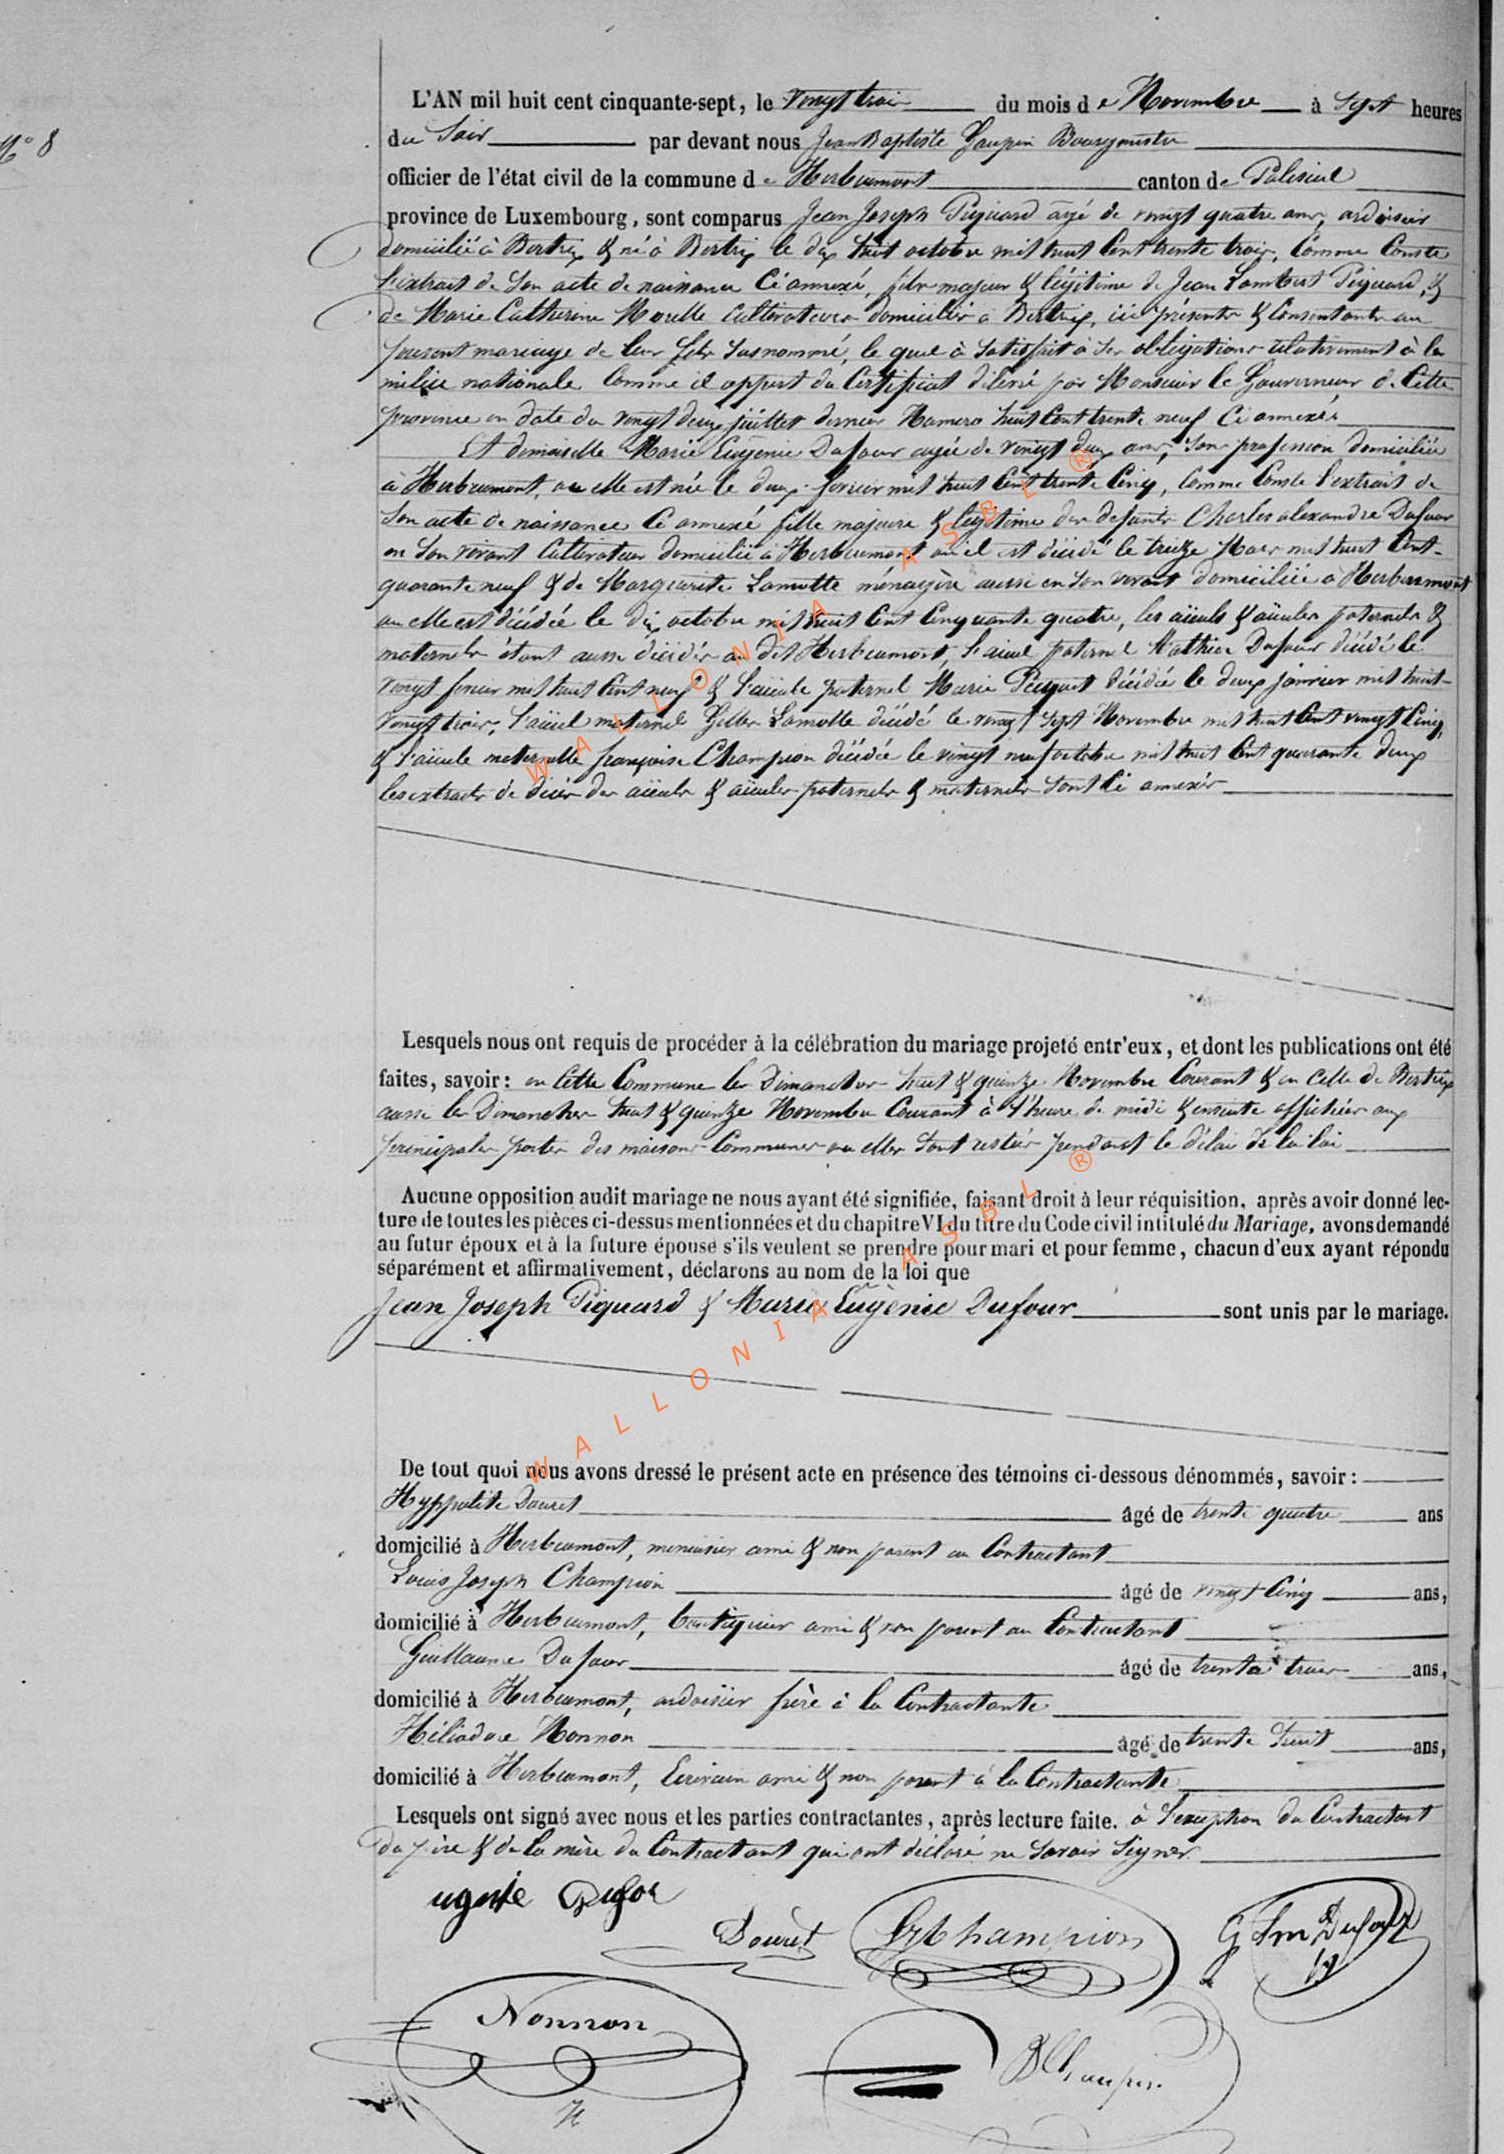 N° 8
L'AN mil huit cent cinquante-sept, le vingt trois du mois de Novembre à Sept heures
du Soir par devant nous Jean Baptiste Bourgmestre
officier de l'état civil de la commune de Herbeumont canton de Paliseul
province de Luxembourg, sont comparus Jean Joseph Piquard âgé de vingt quatre ans, ardoisier
domicilié à Bertrix & né à Bertrix le dix huit octobre mil huit Cent trente trois, Comme Conste
l'extrait de Son acte de naissance Ci annexé, fils majeur & légitime de Jean Lambert Piquard, &
de Marie Catherine Morelle Cultivateurs domiciliés à Bertrix, ici présents & Consentants au
présent mariage de leur fils Susnommé, le quel à Satisfait à Ses obligations relativement à la
milice nationale Comme il appert du Certificat délivré par Monsieur le Gouverneur de Cette
province en date du vingt deux juillet dernier Numero huit Cent trente neuf Ci annexé
Et demoiselle Marie Eugénie Dufour agée de vingt deux ans, Sans profession domiciliée
à Herbeumont, ou elle est née le deux fevrier mil huit Cent trente Cinq, Comme Conste l'extrait de
Son acte de naissance Ci annexé fille majeure & légitime des defunts Charles alexandre Dufour
en Son vivant Cultivateur domicilié à Herbeumont ou il est décédé le treize Mars mil huit Cent-
quarante neuf & de Marguerite Lamotte ménagère aussi en Son vivant domiciliée à Herbeumont
ou elle est décédée le dix octobre mil huit Cent Cinquante quatre, les aïeuls & aïeules paternels &
maternels étant aussi décédés au dit Herbeumont, l'aieul paternel Mathieu Dufour décédé le
vingt fevrier mil huit Cent neuf & l'aïeule paternel Marie décédée le deux janvier mil huit-
vingt trois, l'aïeul maternel Gilles Lamotte décédé le vingt Sept Novembre mil huit Cent vingt Cinq,
& l'aïeule maternelle françoise Champion décédée le vingt neuf octobre mil huit Cent quarante deux
les extraits de décès des aïeuls & aïeules paternels & maternels Sont Ci annexés
Lesquels nous ont requis de procéder à la célébration du mariage projeté entr'eux, et dont les publications ont été
faites, savoir : en Cette Commune les Dimanches huit & quinze Novembre Courant & en Celle de Bertrix
aussi les Dimanches huit & quinze Novembre Courant à l'heure de midi & ensuite affichées aux
principales portes des maisons Communes ou elles Sont restées pendant le délai de la loi
Aucune opposition audit mariage ne nous ayant été signifiée, faisant droit à leur réquisition, après avoir donné lec-
ture de toutes les pièces ci-dessus mentionnées et du chapitre VI du titre du Code civil intitulé du Mariage, avons demandé
au futur époux et à la future épouse s'ils veulent se prendre pour mari et pour femme, chacun d'eux ayant répondu
séparément et affirmativement, déclarons au nom de la loi que
Jean Joseph Piquard & Marie Eugénie Dufour sont unis par le mariage.
De tout quoi nous avons dressé le présent acte en présence des témoins ci-dessous dénommés, savoir :
Hyppolite Douret âgé de trente quatre ans
domicilié à Herbeumont, menuisier ami & non parent au Contractant
Louis Joseph Champion âgé de vingt Cinq ans,
domicilié à Herbeumont, boutiquier ami & non parent au Contractant
Guillaume Dufour âgé de trente trois ans,
domicilié à Herbeumont, ardoisier frère à la Contractante
Héliodore Nonnon âgé de trente huit ans,
domicilié à Herbeumont, Ecrivain ami & non parent à la Contractante
Lesquels ont signé avec nous et les parties contractantes, après lecture faite. à l'exception du Contractant
du père & de la mère du Contractant qui ont déclaré ne Savoir Signer
ugenie Dufor
Douret
Champion
Dufour
Nonnon
WALLONIA ASBL ®
WALLONIA ASBL ®